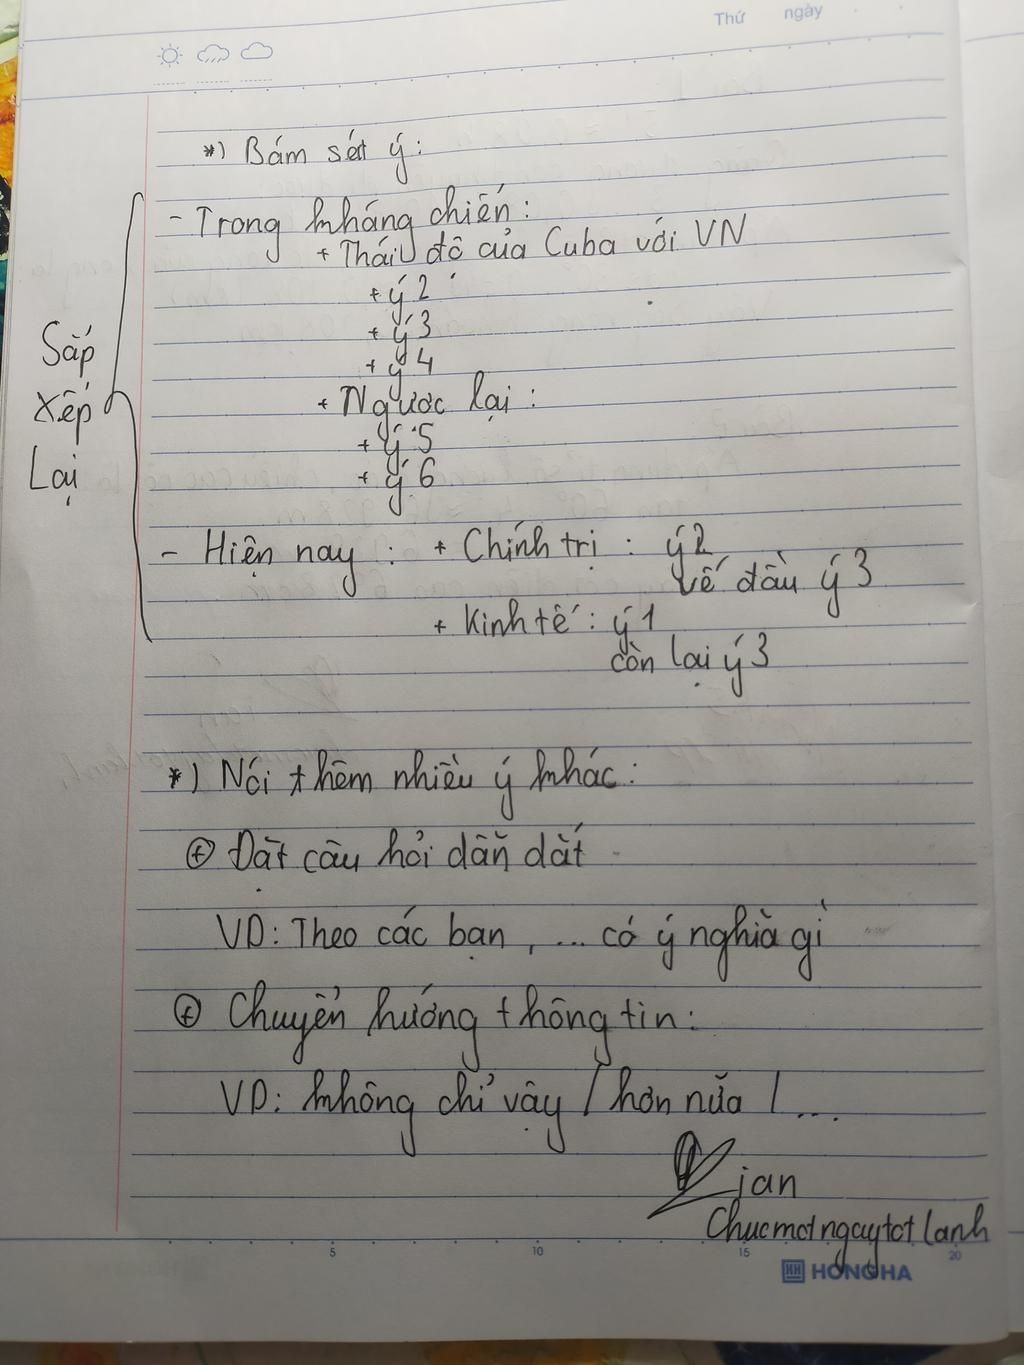 Thứ ngày
*) Bám sát ý:
- Trong kháng chiến:
+ Thái độ của Cuba với VN
+ ý 2
+ ý 3
+ ý 4
+ Ngược lại:
+ ý 5
+ ý 6
Sắp
xếp
Lại
- Hiện nay: + Chính trị: ý 2
vế đầu ý 3
+ Kinh tế: ý 1
còn lại ý 3
*) Nói thêm nhiều ý khác:
+ Đặt câu hỏi dẫn dắt
VD: Theo các bạn, ... có ý nghĩa gì
+ Chuyển hướng thông tin:
VD: không chỉ vậy / hơn nữa / ...
ian
Chucmotngaytotlanh
5 10 15 20
HH HONG HA